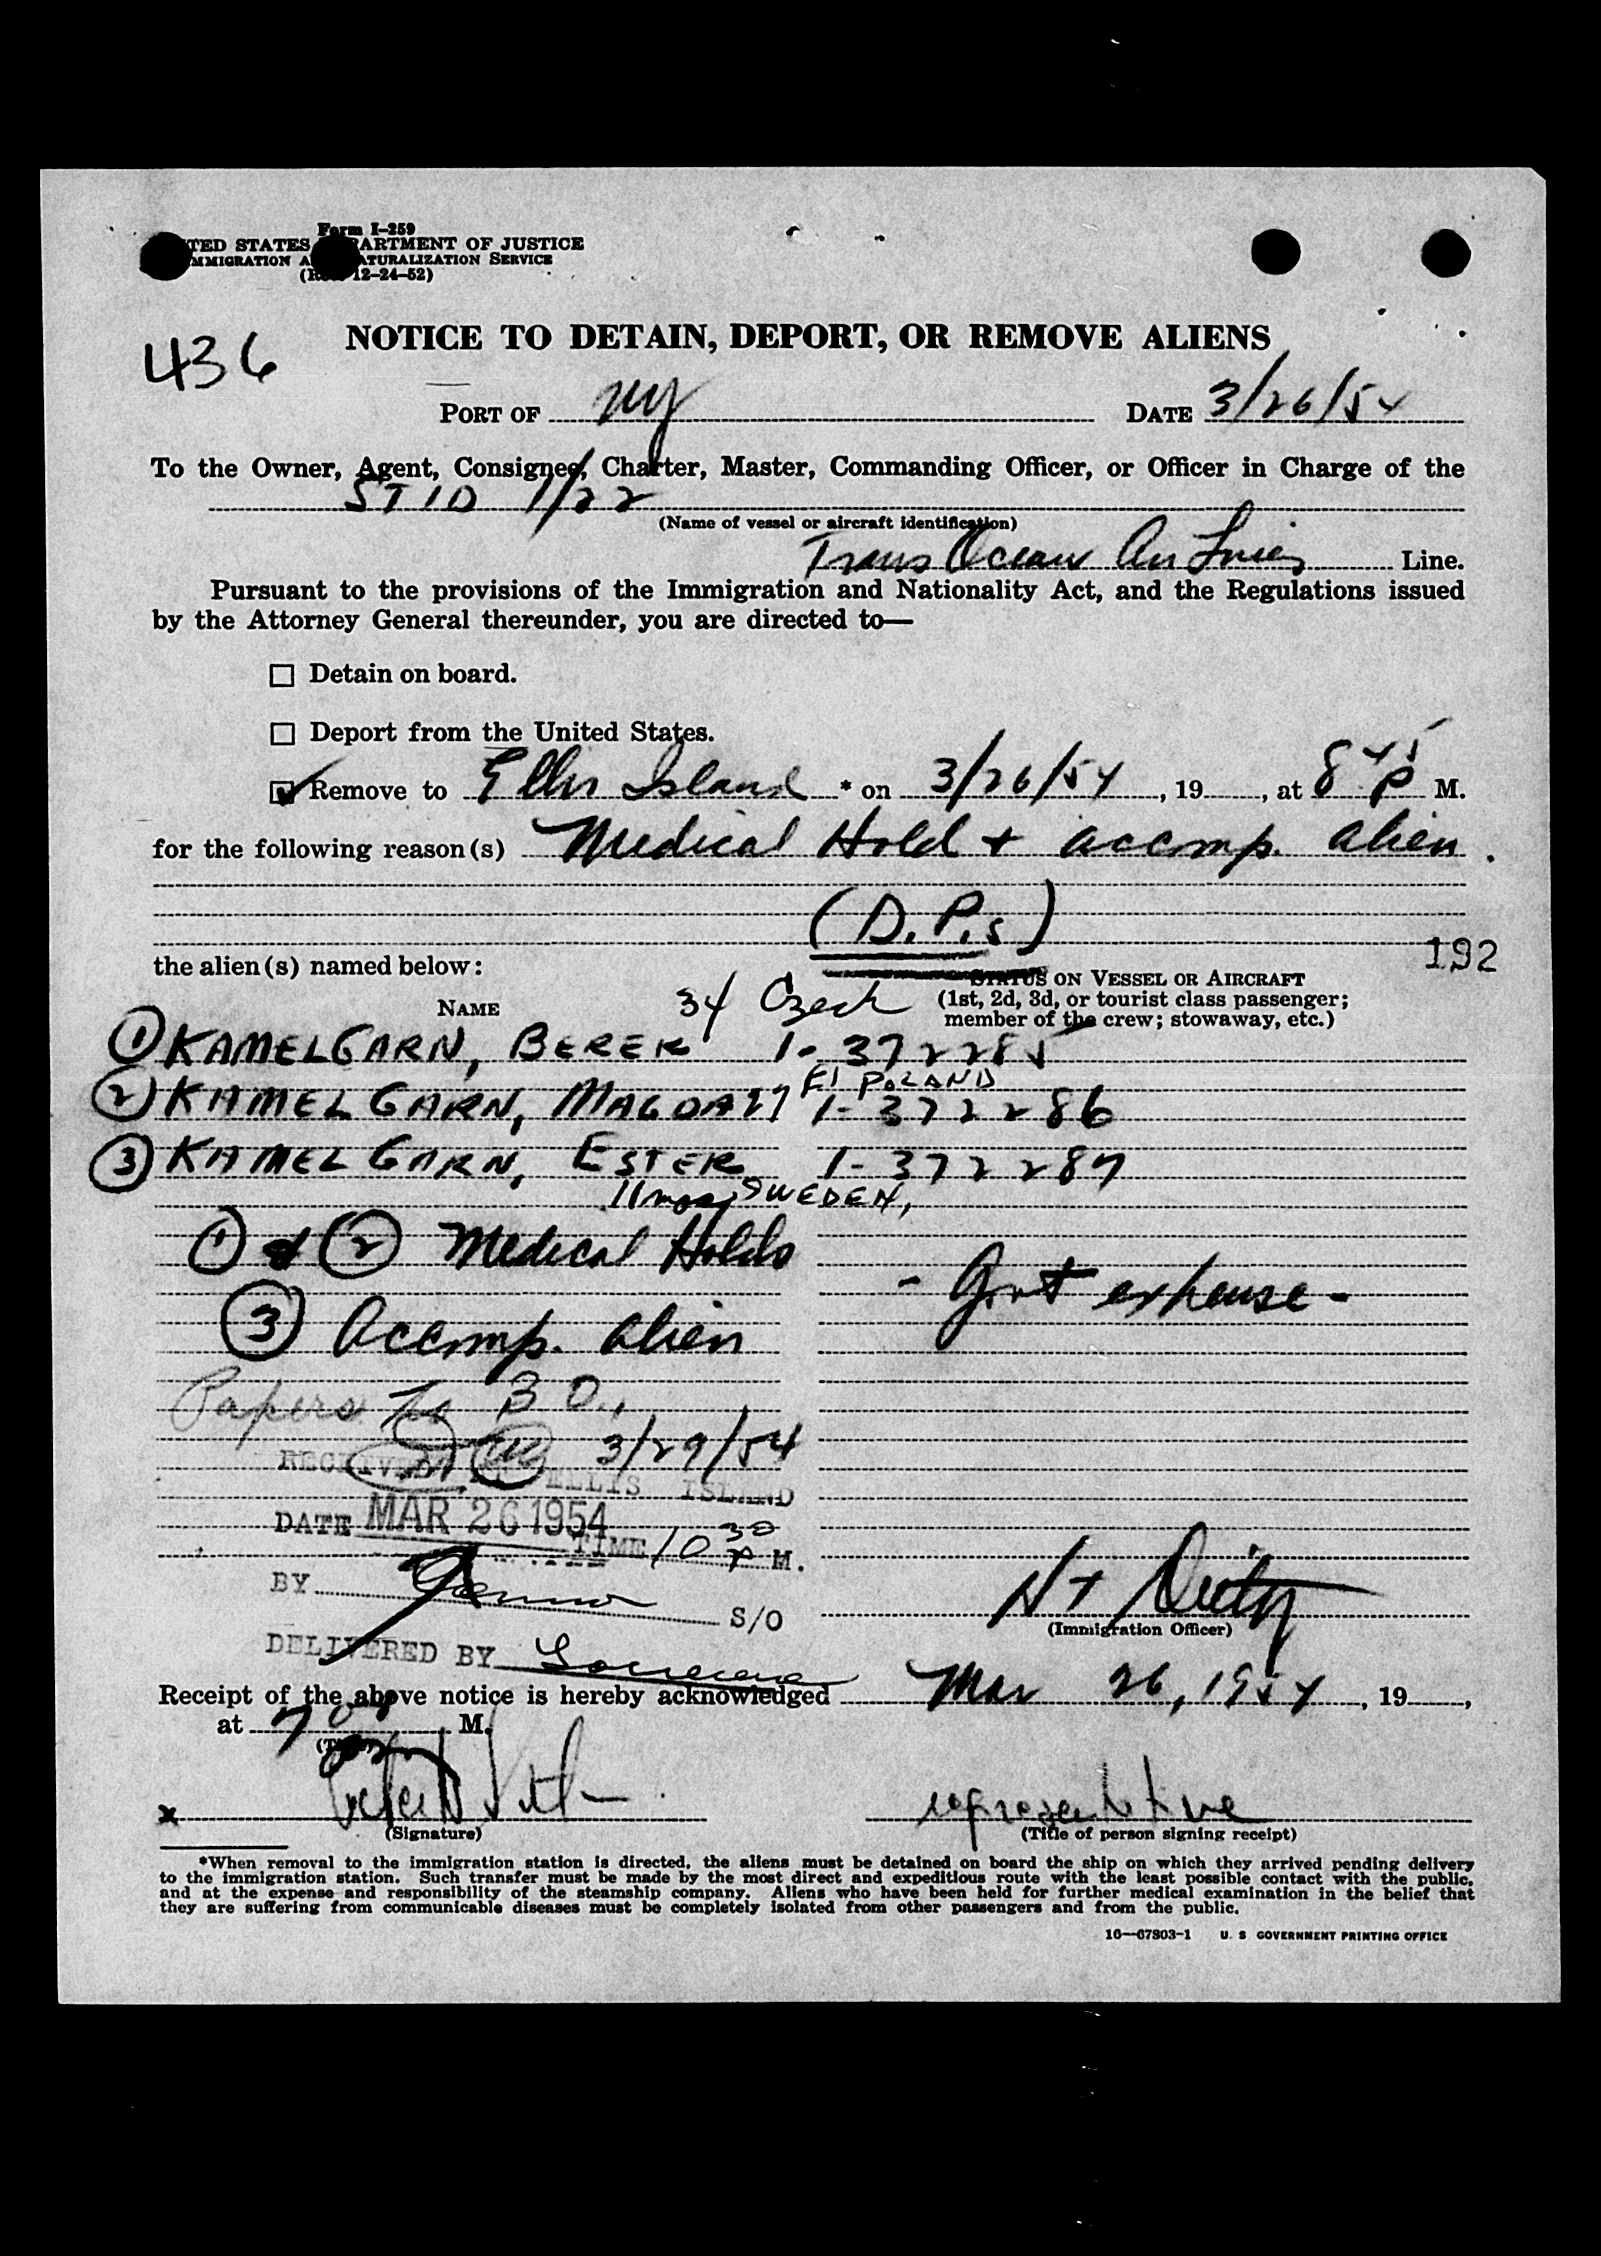 Form I-259
TED STATES ARTMENT OF JUSTICE
MMIGRATION A TURALIZATION SERVICE
12-24-52)
436
NOTICE TO DETAIN, DEPORT, OR REMOVE ALIENS
PORT OF NY DATE 3/26/54
To the Owner, Agent, Consignee, Charter, Master, Commanding Officer, or Officer in Charge of the
1/22
(Name of vessel or aircraft identification)
Trans Ocean Air Lines Line.
Pursuant to the provisions of the Immigration and Nationality Act, and the Regulations issued
by the Attorney General thereunder, you are directed to—
Detain on board.
Deport from the United States.
Remove to Ellis Island * on 3/26/54, 19, at 8 45 P M.
for the following reason(s) Medical Hold + accomp. alien.
(D.P.s)
192
the alien(s) named below:
STATUS ON VESSEL OR AIRCRAFT
NAME 34 Czech (1st, 2d, 3d, or tourist class passenger;
member of the crew; stowaway, etc.)
① KAMELGARN, BEREK 1-372285
POLAND
② KAMELGARN, MAGDA 27 1-372286
③ KAMELGARN, ESTER 1-372287
11 mos, SWEDEN,
① & ② Medical Holds
- Govt expense -
③ Accomp. alien
Papers to B O.,
3/29/54
RECEIVED ELLIS ISLAND
DATE MAR 26 1954
TIME 10 30 P M.
BY S/O
(Immigration Officer)
DELIVERED BY
Receipt of the above notice is hereby acknowledged Mar 26, 1954, 19,
at M.
x representative
(Signature) (Title of person signing receipt)
*When removal to the immigration station is directed, the aliens must be detained on board the ship on which they arrived pending delivery
to the immigration station. Such transfer must be made by the most direct and expeditious route with the least possible contact with the public,
and at the expense and responsibility of the steamship company. Aliens who have been held for further medical examination in the belief that
they are suffering from communicable diseases must be completely isolated from other passengers and from the public.
16—67803-1 U. S GOVERNMENT PRINTING OFFICE